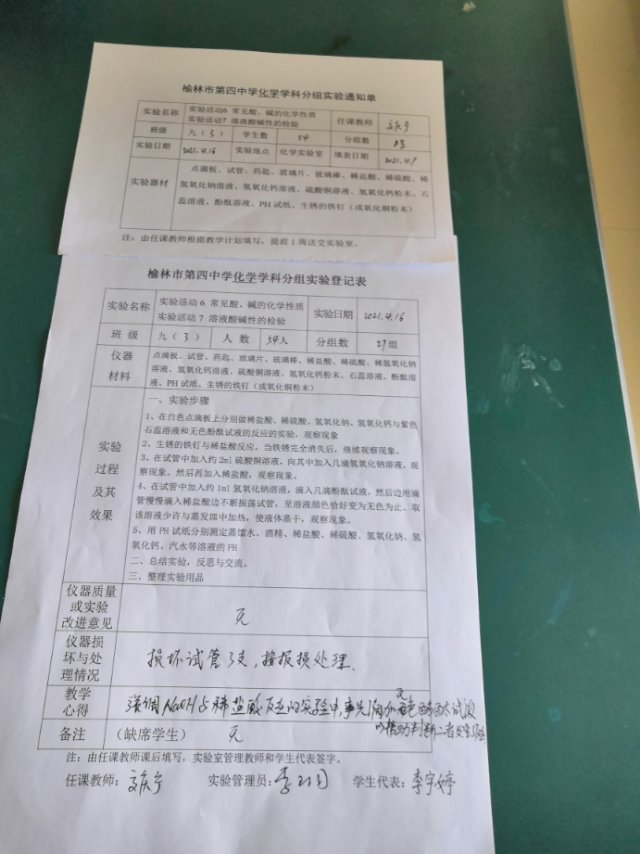 榆林市第四中学化学学科分组实验通知单
实验名称 实验活动6 常见酸、碱的化学性质
实验活动7 溶液酸碱性的检验 任课教师
班级 九(3) 学生数 54 分组数
实验日期 2021.4.16 实验地点 化学实验室 填表日期 2021.4.9
实验器材 点滴板、试管、药匙、玻璃片、玻璃棒、稀盐酸、稀硫酸、稀
氢氧化钠溶液、氢氧化钙溶液、硫酸铜溶液、氢氧化钙粉末、石
蕊溶液、酚酞溶液、PH试纸、生锈的铁钉(或氧化铜粉末)
注:由任课教师根据教学计划填写,提前1周送交实验室。
榆林市第四中学化学学科分组实验登记表
实验名称 实验活动 6 常见酸、碱的化学性质
实验活动 7 溶液酸碱性的检验 实验日期 2021.4.16
班 级 九(3) 人 数 54人 分组数 27组
仪器
材料 点滴板、试管、药匙、玻璃片、玻璃棒、稀盐酸、稀硫酸、稀氢氧化钠
溶液、氢氧化钙溶液、硫酸铜溶液、氢氧化钙粉末、石蕊溶液、酚酞溶
液、PH试纸、生锈的铁钉(或氧化铜粉末)
实验
过程
及其
效果
一、实验步骤
1、在白色点滴板上分别做稀盐酸、稀硫酸、氢氧化钠、氢氧化钙与紫色
石蕊溶液和无色酚酞试液的反应的实验,观察现象
2、生锈的铁钉与稀盐酸反应,当铁锈完全消失后,继续观察现象。
3、在试管中加入约2ml硫酸铜溶液,向其中加入几滴氢氧化钠溶液,观
察现象。然后再加入稀盐酸,观察现象。
4、在试管中加入约1ml氢氧化钠溶液,滴入几滴酚酞试液。然后边用滴
管慢慢滴入稀盐酸边不断振荡试管,至溶液颜色恰好变为无色为止、取
该溶液少许与蒸发皿中加热,使液体蒸干,观察现象。
5、用PH试纸分别测定蒸馏水、酒精、稀盐酸、稀硫酸、氢氧化钠、氢
氧化钙、汽水等溶液的PH
二、总结实验,反思与交流。
三、整理实验用品
仪器质量
或实验
改进意见 无
仪器损
坏与处
理情况 损坏试管3支,按报损处理.
教学
心得 强调NaOH与稀盐酸反应的实验中,事先向加无色酚酞试液
备注 (缺席学生) 无
注:由任课教师课后填写,实验室管理教师和学生代表签字。
任课教师: 实验管理员: 学生代表:李宇婷